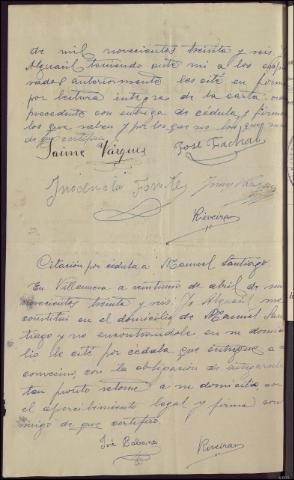 de mil novecientos treinta y seis. Yo
Alguacil teniendo ante mi a los
nados anteriormente les cité en forma
por lectura integra de la carta orden
precedente con entrega de cédula, y firman
los que saben y por los que no
de que certifico.
Jaime Vázquez
José
Inocencia
Riveiras
Citación por cédula a Manuel Santiago
En Villanueva a veintiuno de abril de mil
novecientos treinta y seis: Yo Alguacil me
constituí en el domicilio de Manuel San
tiago y no encontrándole en su domici
lio le cité por cédula que entregué a su
convecino, con la obligación de entregarla
tan pronto retorne a su domicilio con
el apercibimiento legal y firma con
migo de que certifico.
José
Riveiras